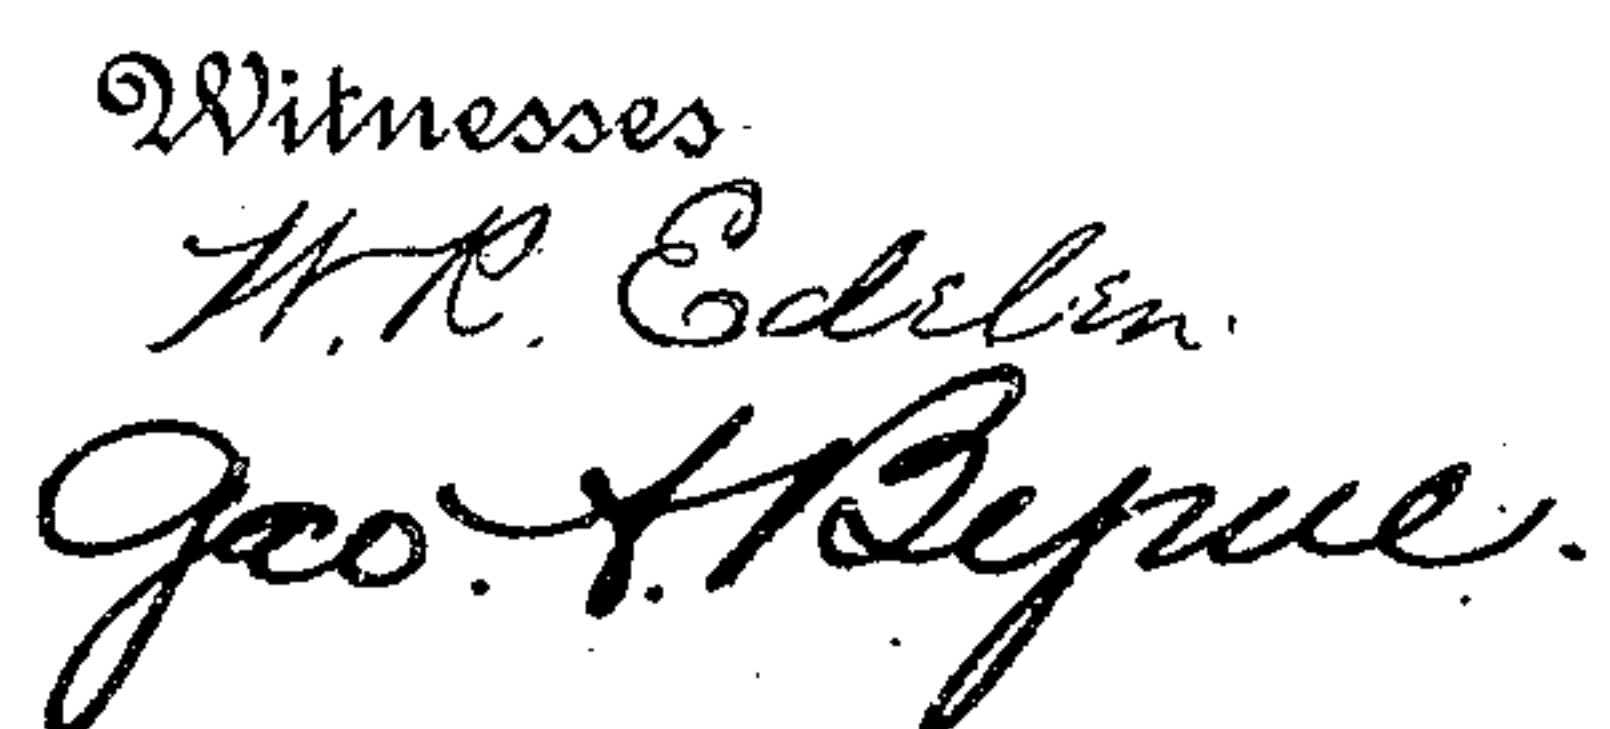 Witnesses
W. R. Edelen.
Geo. Byrne.